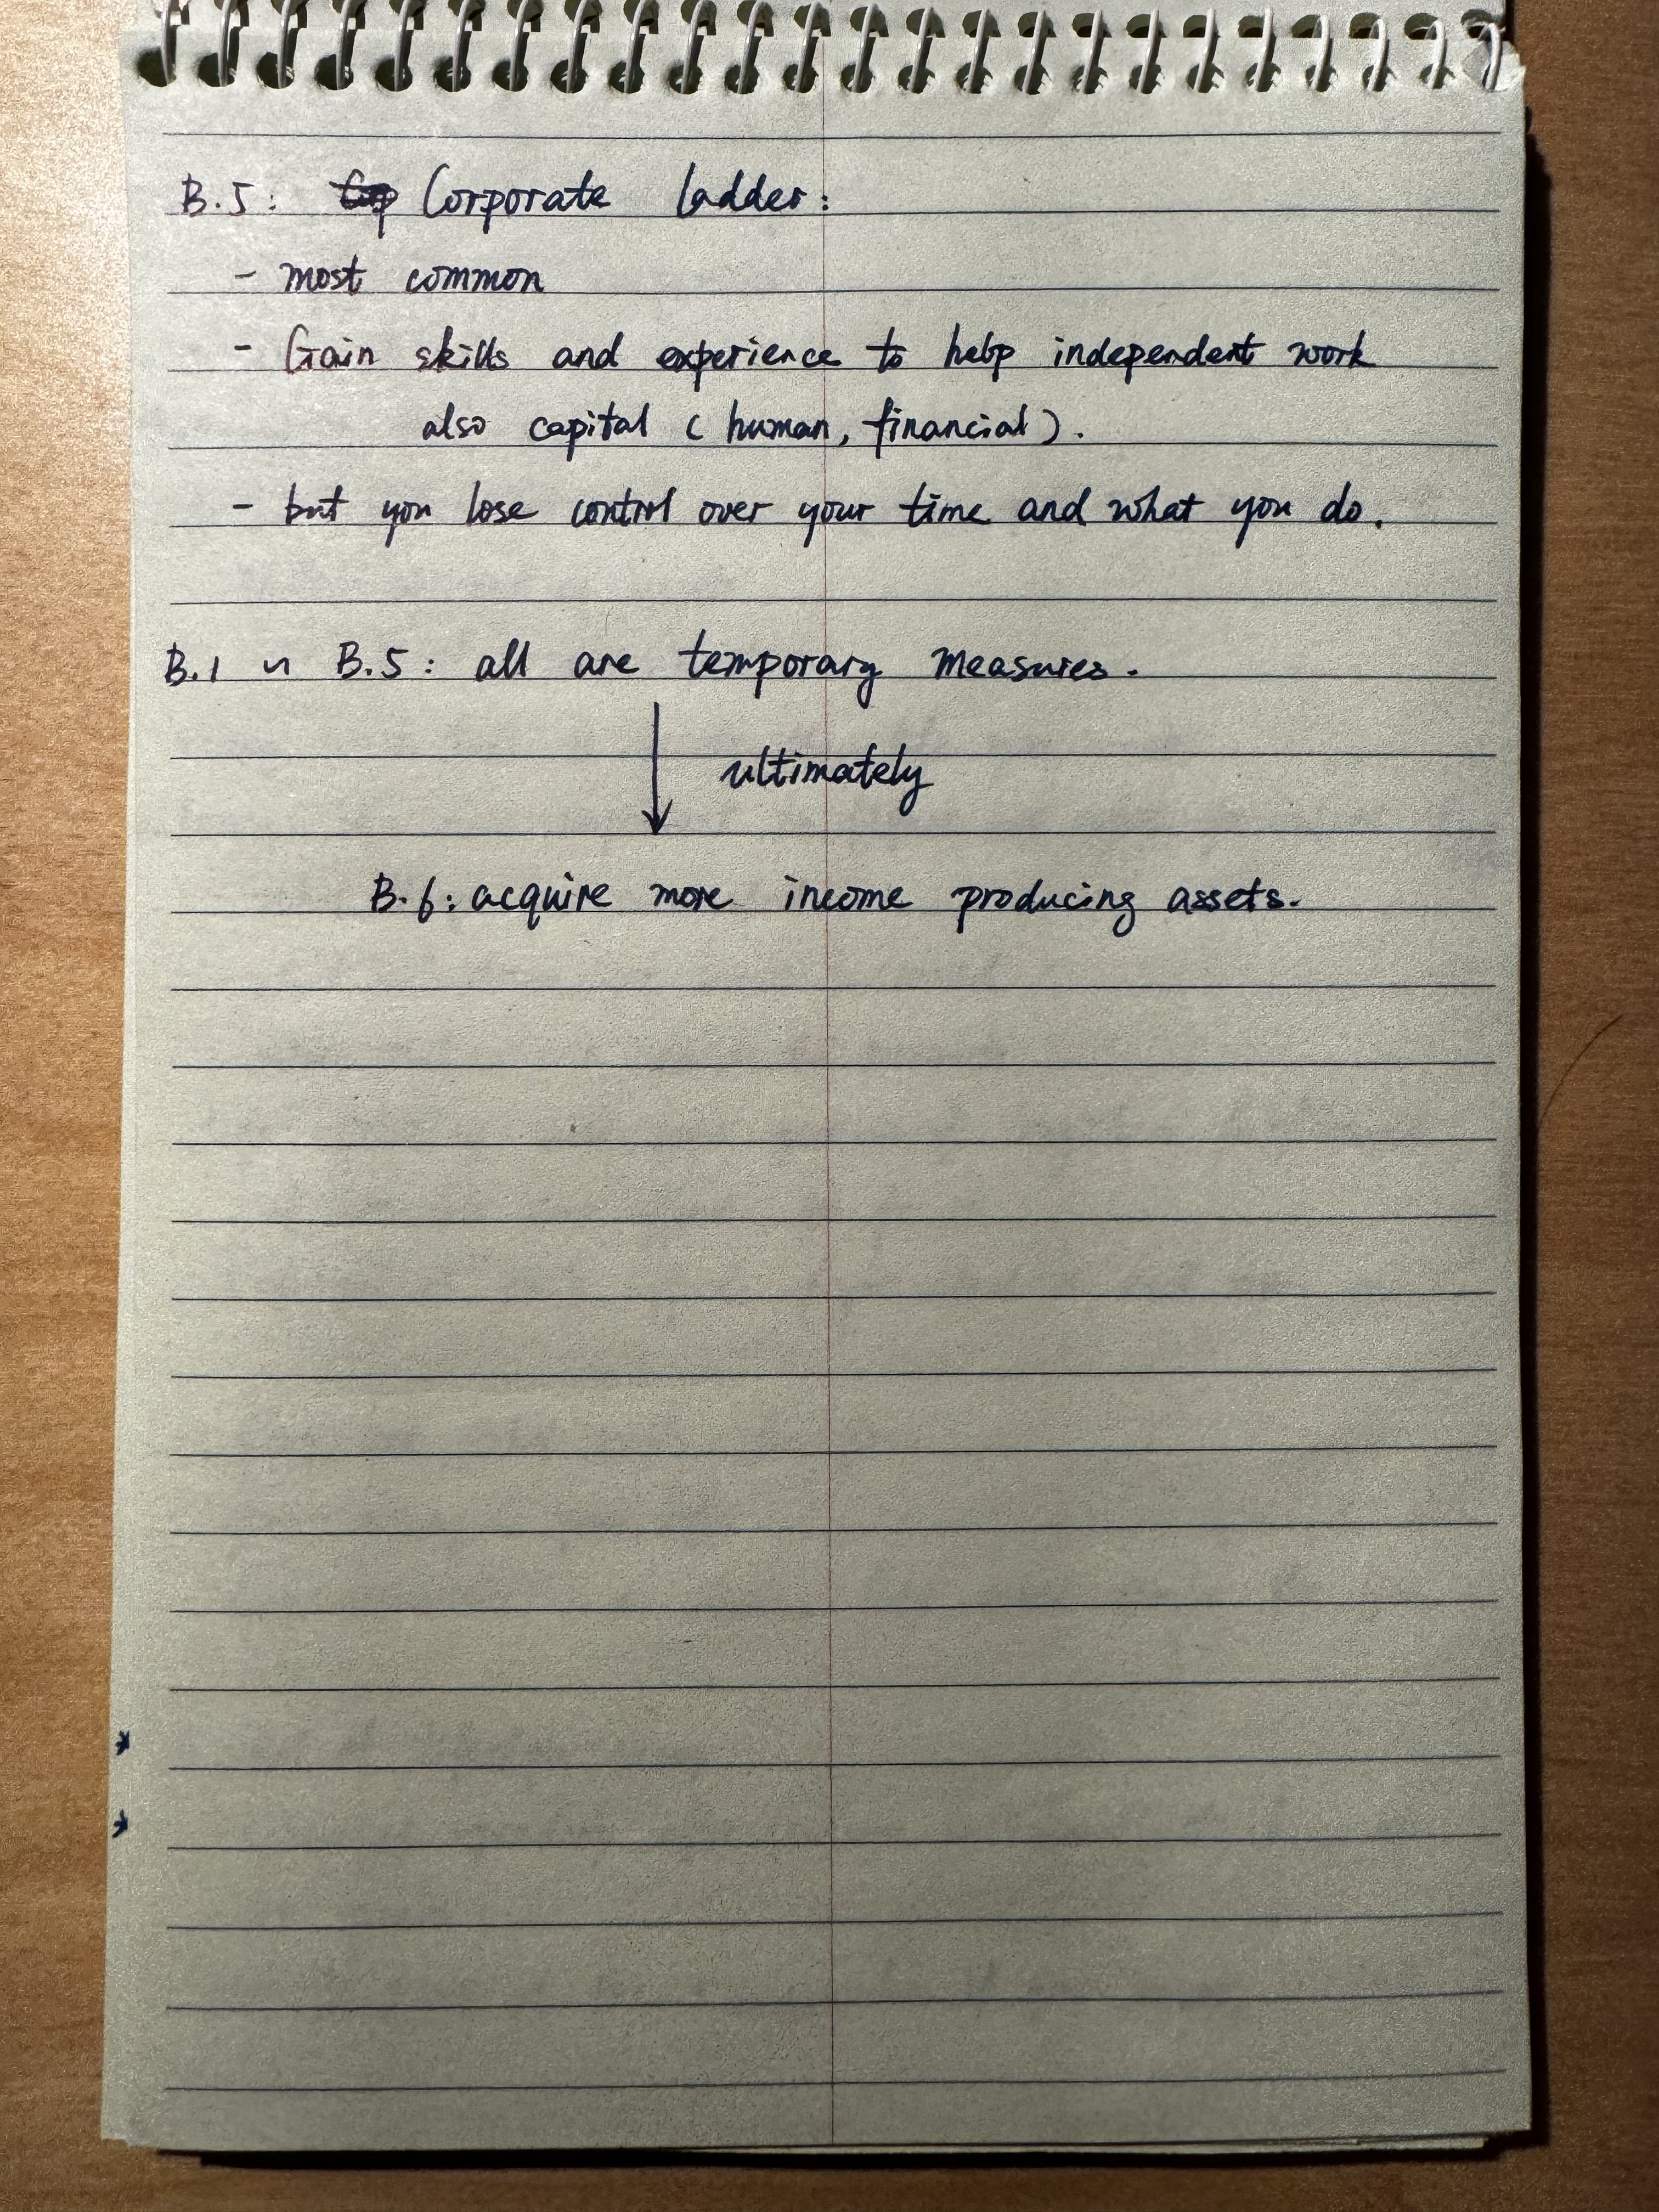 B.5: Corporate ladder:
- most common
- Gain skills and experience to help independent work
also capital ( human, financial ).
- but you lose control over your time and what you do.
B.1 ~ B.5: all are temporary measures.
ultimately
B.6: acquire more income producing assets.